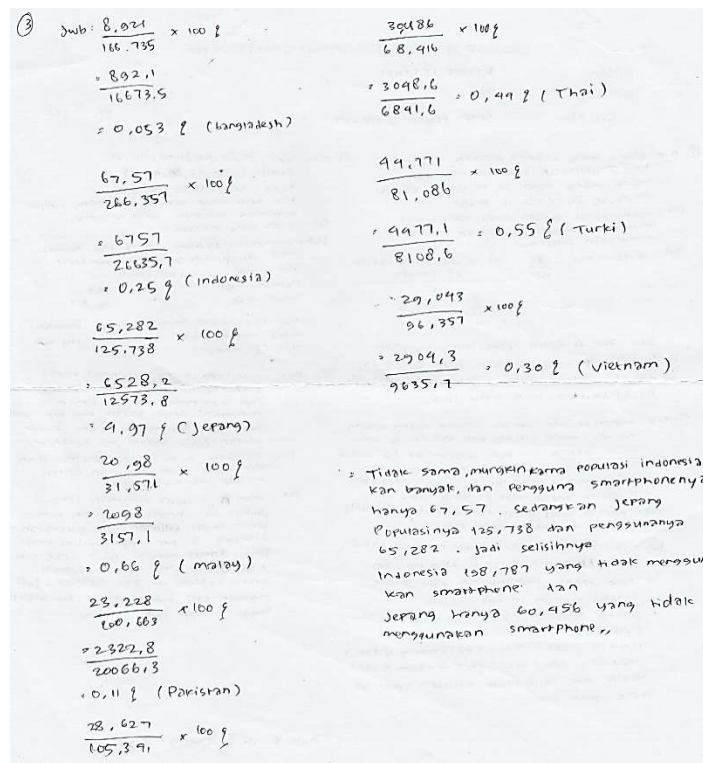 ③ Jwb : 8,921 / 166.735 x 100 %
= 892,1 / 16673,5
= 0,053 % (bangladesh)
67,57 / 266,357 x 100 %
= 6757 / 26635,7
= 0,25 % (indonesia)
65,282 / 125.738 x 100 %
= 6528,2 / 12573,8
= 4.97 % (Jepang)
20,98 / 31,571 x 100 %
= 2098 / 3157,1
= 0,66 % (malay)
23.228 / 200,663 x 100 %
= 2322,8 / 20066,3
= 0,11 % (Pakistan)
28,627 / 105,391 x 100 %
30486 / 68,416 x 100 %
= 3048,6 / 6841,6 = 0,44 % (Thai)
44.771 / 81,086 x 100 %
= 4477,1 / 8108,6 = 0,55 % (Turki)
29,043 / 96,357 x 100 %
= 2904,3 / 9635,7 = 0,30 % (Vietnam)
= Tidak sama, mungkin karna populasi indonesia
kan banyak, dan pengguna smartphonenya
hanya 67,57. sedangkan Jepang
Populasinya 125,738 dan penggunanya
65,282. Jadi selisihnya
Indonesia 198,787 yang tidak menggu
kan smartphone dan
Jepang hanya 60,456 yang tidak
menggunakan smartphone,,